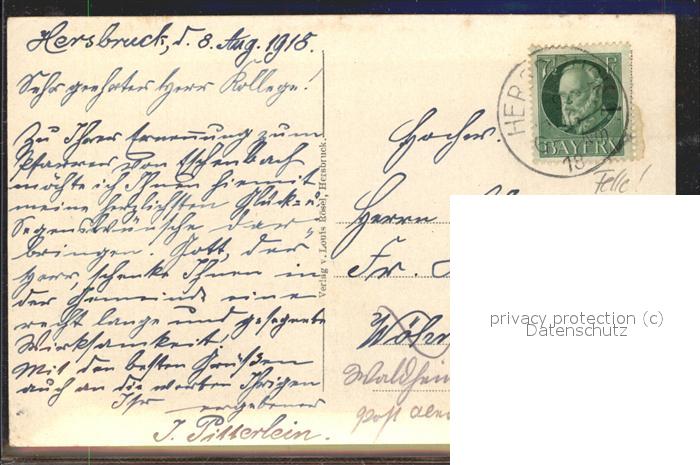 Hersbruck, d. 8. Aug. 1918.
Sehr geehrter Herr Kollege!
Zu Ihrer Ernennung zum
Pfarrer von Eschenbach
möchte ich Ihnen hiermit
meine herzlichsten Glück- u.
Segenswünsche dar-
bringen. Gott, der
Herr, schenke Ihnen in
der Gemeinde eine
recht lange und gesegnete
Wirksamkeit!
Mit den besten Grüßen
auch an die werten Ihrigen
Ihr ergebener
J. Pitterlein.
Verlag v. Louis Rösel, Hersbruck.
7½ P F
BAYERN
HERS
18
Felle!
Hochw.
Herrn
Fr.
Wöhr
Waldheim
post
privacy protection (c)
Datenschutz